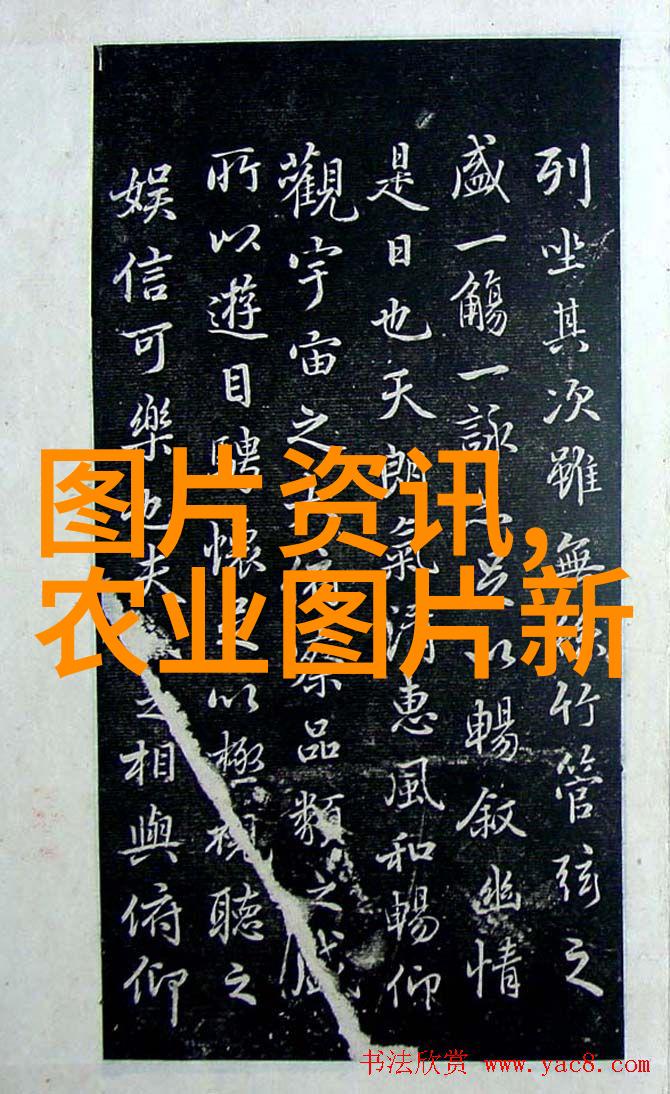 列坐其次雖無絲竹管弦之
盛一觴一詠亦足以暢敘幽情
是日也天朗氣清惠風和暢仰
觀宇宙之俯察品類之盛
所以遊目騁懷足以極視聽之
娛信可樂也夫之相與俯仰
图片资讯,
农业图片新
书法欣赏 www.yac8.com